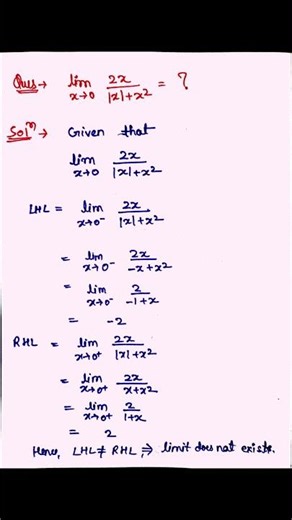 Ques → lim x→0 2x/|x|+x² = ?
Solⁿ → Given that
lim x→0 2x/|x|+x²
LHL = lim x→0⁻ 2x/|x|+x²
= lim x→0⁻ 2x/-x+x²
= lim x→0⁻ 2/-1+x
= -2
RHL = lim x→0⁺ 2x/|x|+x²
= lim x→0⁺ 2x/x+x²
= lim x→0⁺ 2/1+x
= 2
Hence, LHL ≠ RHL ⇒ limit does not exists.